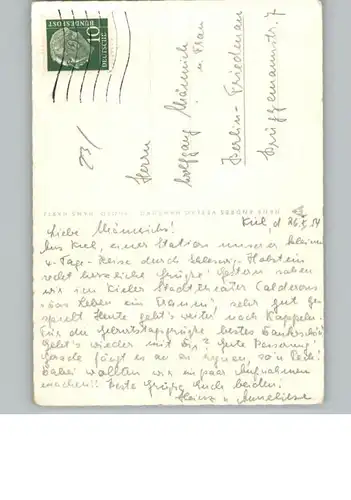 DEUTSCHE BUNDESPOST
10
Herrn
Wolfgang Männich
u. Frau
Berlin-Friedenau
Brüggemannstr. 7
23/
Kiel, d. 26.X.54
Liebe Männichs!
Aus Kiel, einer Station unserer kleinen
4-Tage-Reise durch Schleswig-Holstein
recht herzliche Grüße! Gestern sahen
wir im Kieler Stadttheater Calderons
"Das Leben ein Traum", sehr gut ge-
spielt. Heute geht's weiter nach Kappeln.
Für die Geburtstagsgrüße besten Dankschön!
Geht's wieder mit Dir? Gute Besserung!
Gerade fängt es an zu regnen, so'n Pech!
Dabei wollten wir ein paar Aufnahmen
machen!! Beste Grüße Euch beiden!
Heinz u. Anneliese